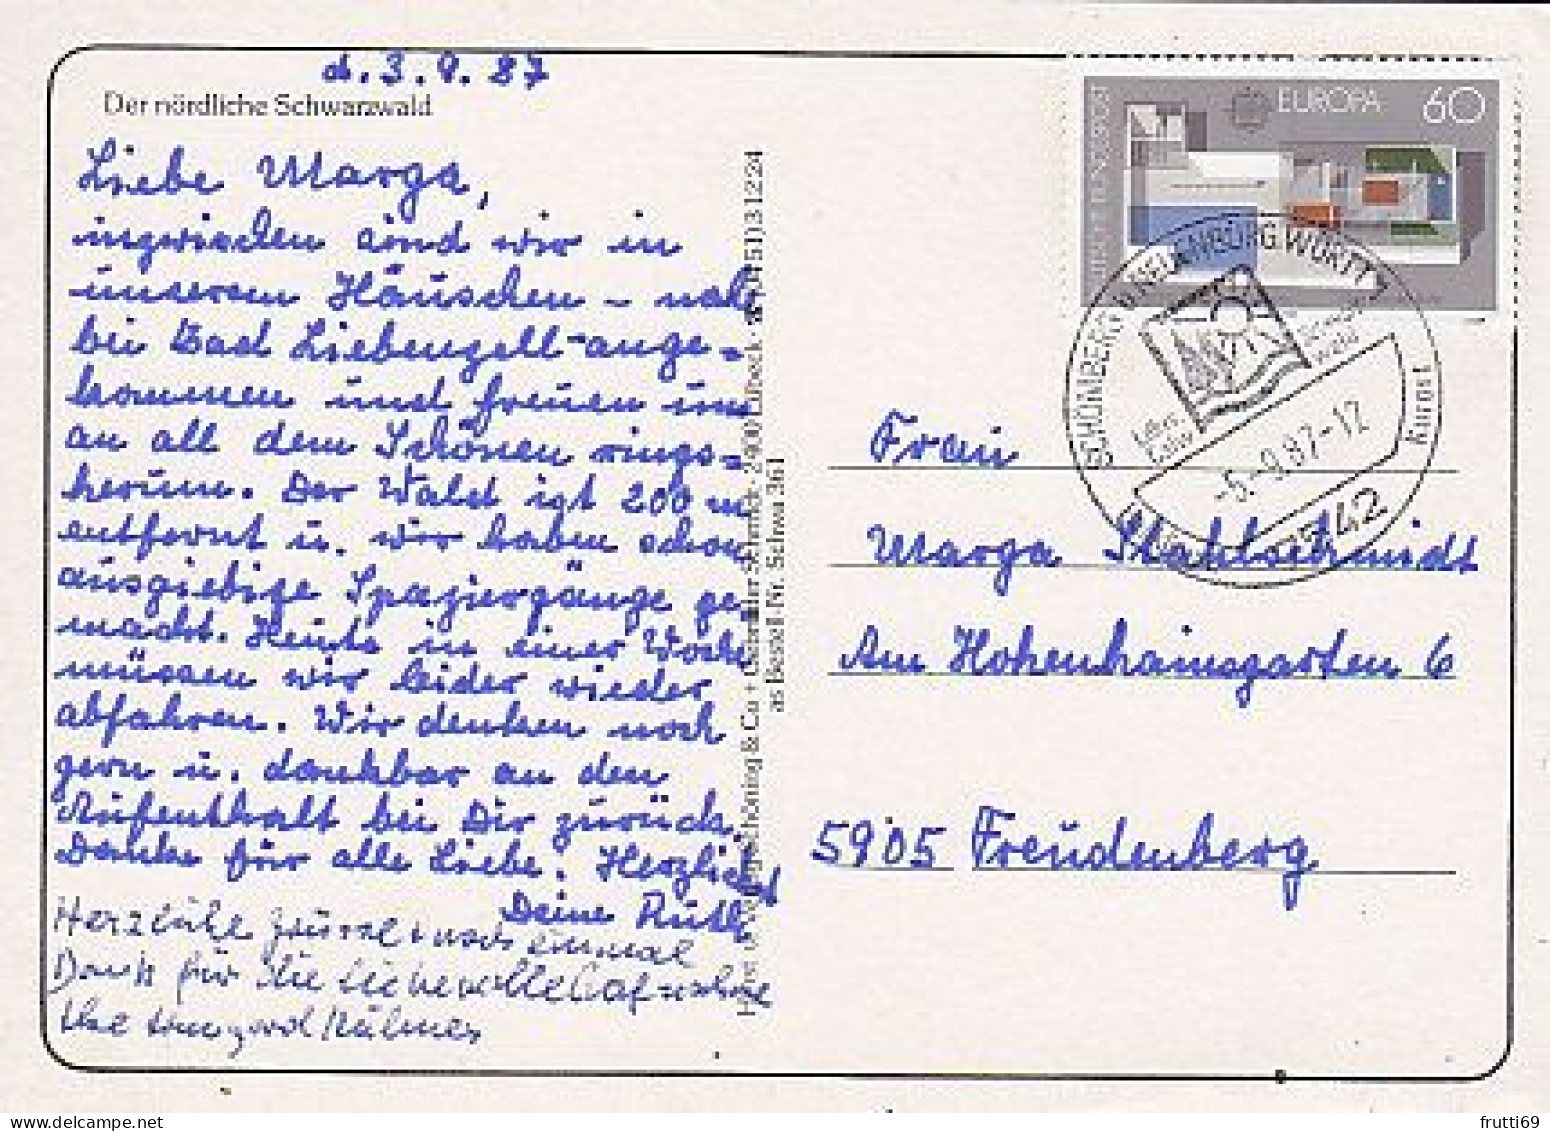 d. 3. 9. 87
Der nördliche Schwarzwald
Liebe Marga,
inzwischen sind wir in
unserem Häuschen – nahe
bei Bad Liebenzell – ange=
kommen und freuen uns
an all dem Schönen rings=
herum. Der Wald ist 200 m
entfernt u. wir haben schon
ausgiebige Spaziergänge ge-
macht. Heute in einer Woche
müssen wir leider wieder
abfahren. Wir denken noch
gern u. dankbar an den
Aufenthalt bei Dir zurück.
Danke für alle Liebe. Herzlichst
Deine Ruth
Herzliche Grüsse + noch einmal
Dank für die liebevolle Aufnahme
Ihre Irmgard
Schöning & Co + Gebrüder Schmidt · 2400 Lübeck
as Bestell-Nr. Schwa 361
EUROPA 60
DEUTSCHE BUNDESPOST
SCHÖMBERG B NEUENBÜRG, WÜRTT
-5.-9.87-12
Kurort
7542
Frau
Marga Stahlschmidt
Am Hohenhainsgarten 6
5905 Freudenberg
frutti69